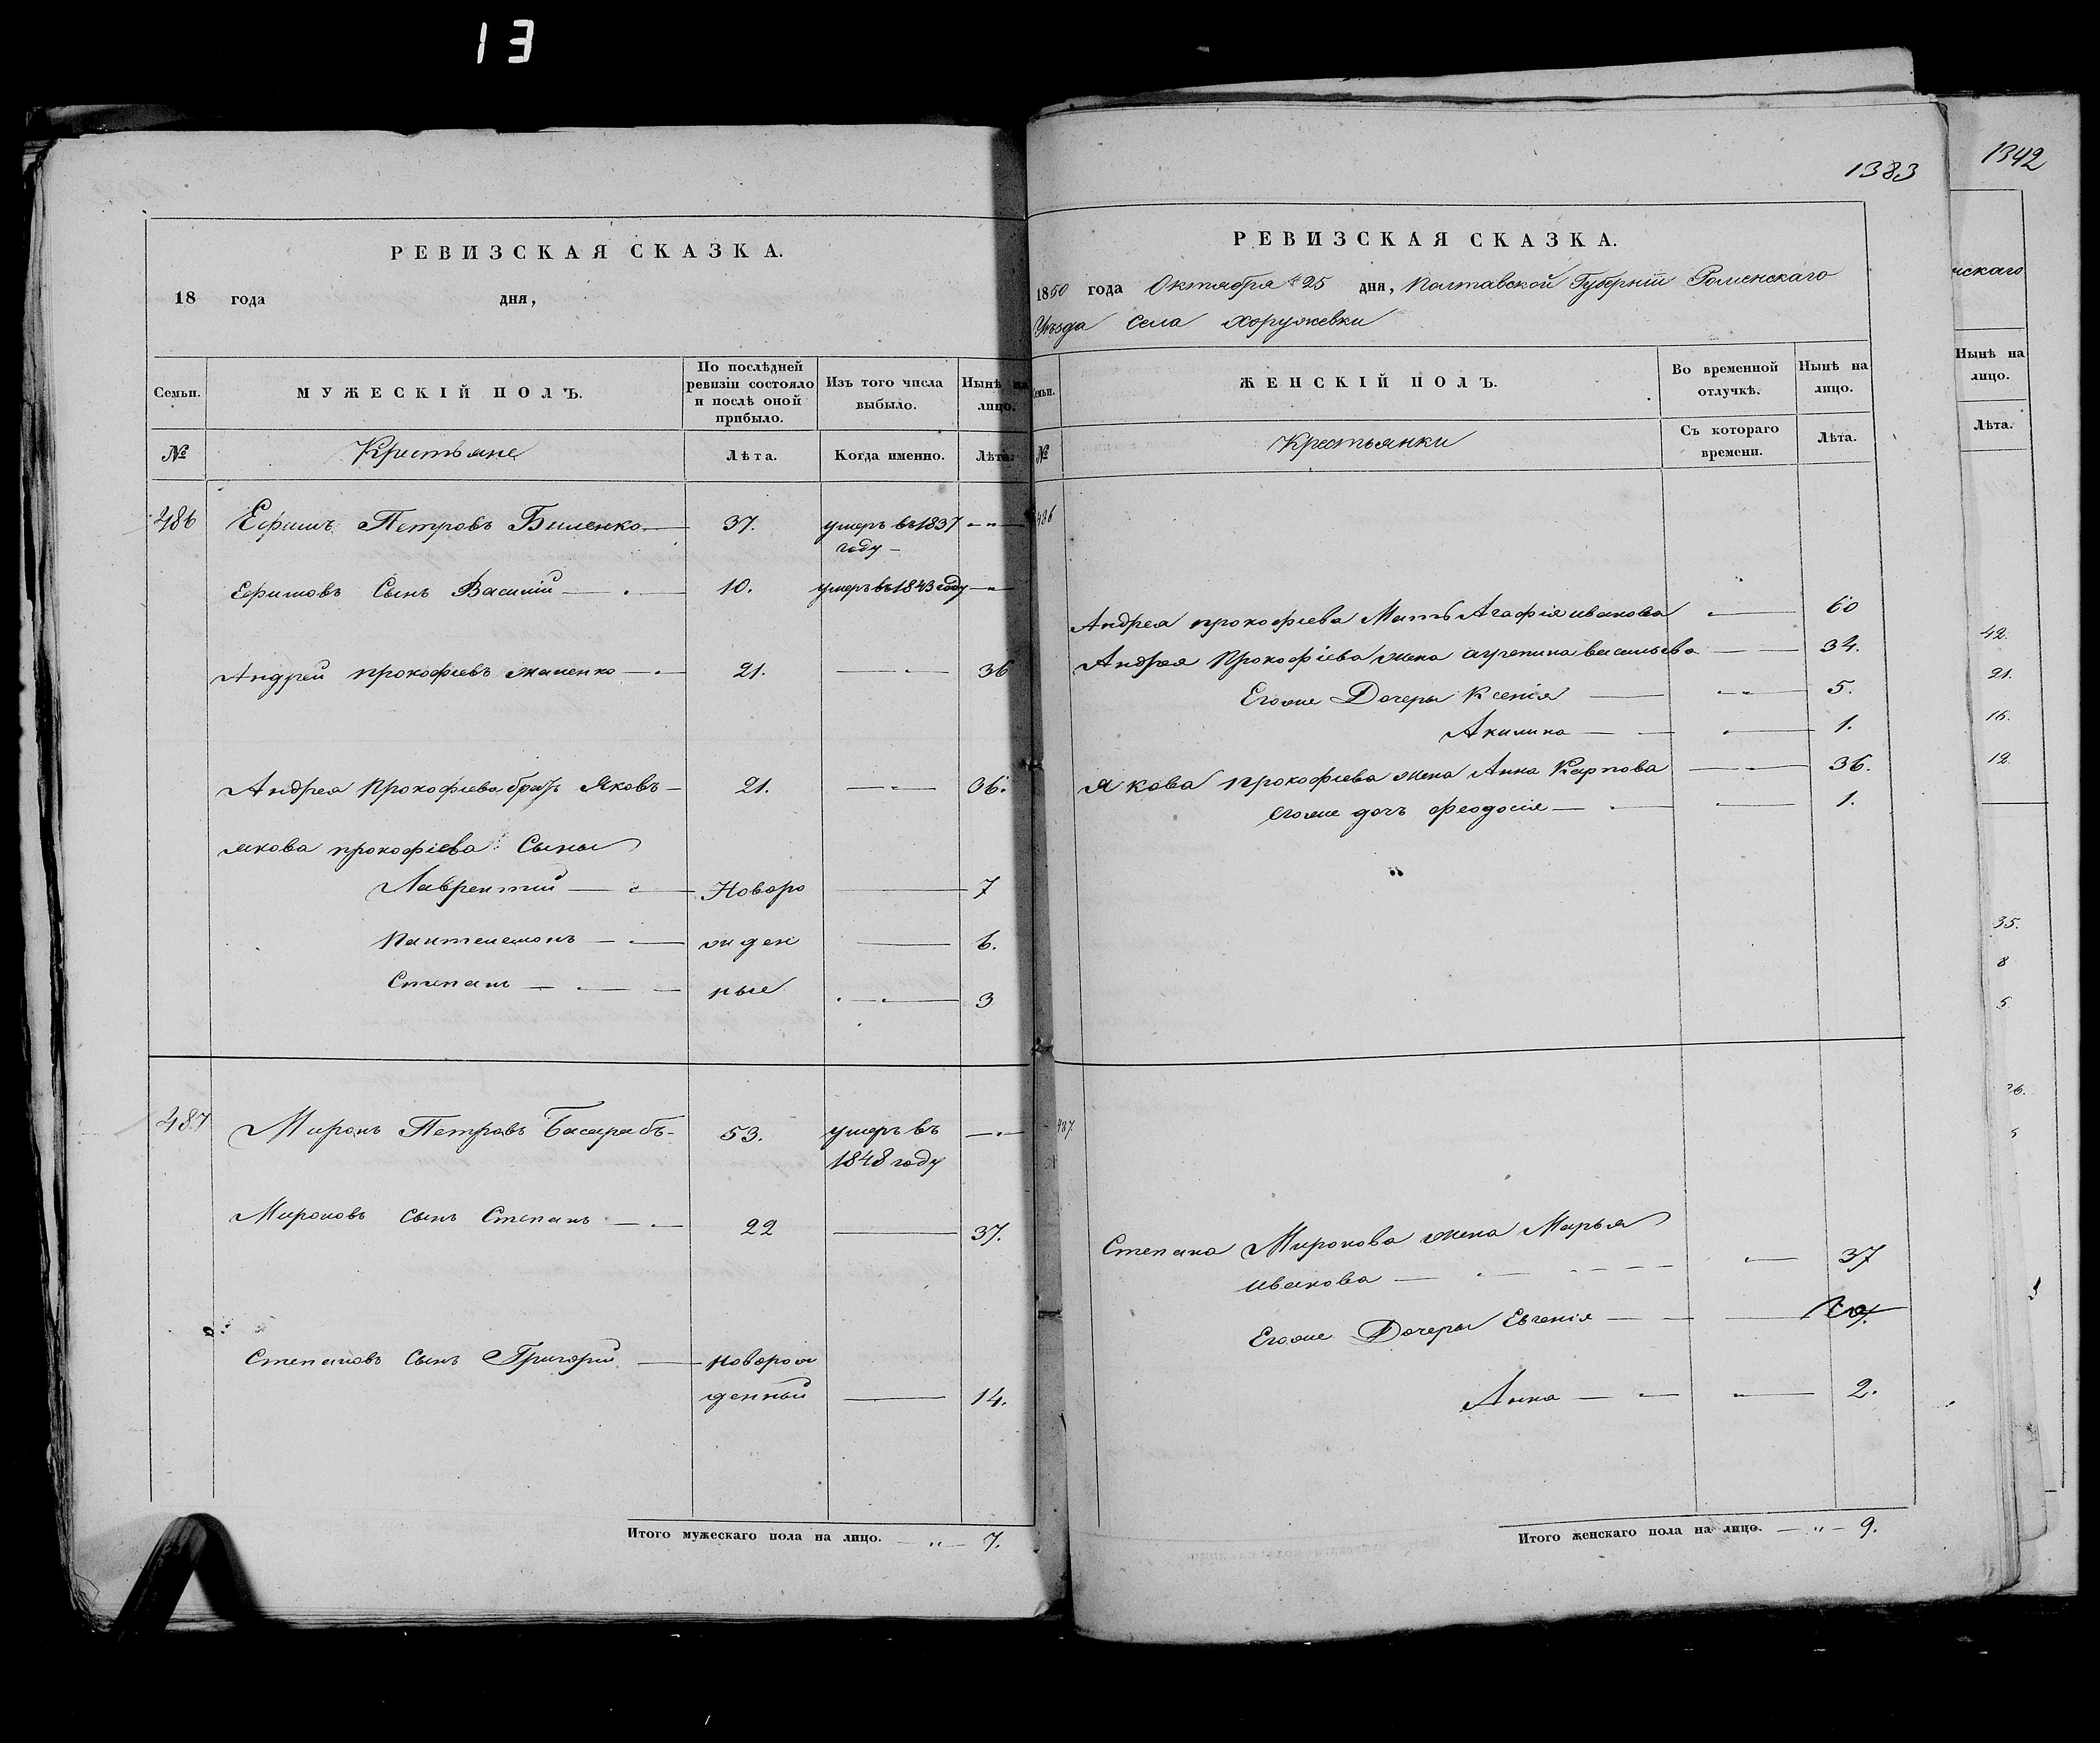 13
РЕВИЗСКАЯ СКАЗКА.
18 года дня,
Семьи.
МУЖЕСКІЙ ПОЛЪ.
По послѣдней ревизіи состояло и послѣ оной прибыло.
Изъ того числа выбыло.
Нынѣ на лицо.
№
Крестьяне
Лѣта.
Когда именно.
Лѣта.
486 Ефимъ Петровъ Биленко — 37. умеръ въ 1837
году —
Ефимовъ Сынъ Василій — 10. умеръ въ 1843 году —
Андрей прокофьевъ — 21. — 36
Андрея Прокофіева братъ Яковъ — 21. — 36.
якова прокофіева Сыны
Лаврентий — Новоро — 7
Пантелемонъ — жден — 6.
Степанъ — ные — 3
487 Миронъ Петровъ Басарабъ — 53. умеръ въ —
1848 году
Мироновъ сынъ Степанъ — 22 — 37.
Степановъ Сынъ Григорий — новорож
денный — 14.
Итого мужескаго пола на лицо. — „ — 7.
1383
РЕВИЗСКАЯ СКАЗКА.
1850 года Октября 25 дня, Полтавской Губерніи Роменскаго
Уѣзда Села Хоружевки
Семьи.
ЖЕНСКІЙ ПОЛЪ.
Во временной отлучкѣ.
Нынѣ на лицо.
№
Крестьянки
Съ котораго времени.
Лѣта.
486
Андрея прокофіева Мать Агафія иванова — 60
Андрея Прокофіева жена агрепина васильева — 34.
Егоже Дочеры Ксенія — 5.
Акилина — 1.
Якова прокофіева жена Анна Карпова — 36.
егоже дочъ феодосія — 1.
487.
Степана Миронова жена Марья
иванова — 37
Егоже Дочеры Евгенія —
Анна — 2.
Итого женскаго пола на лицо. — „ — 9.
1342
нскаго
Нынѣ на лицо.
Лѣта.
42.
21.
16.
12.
35.
8
5